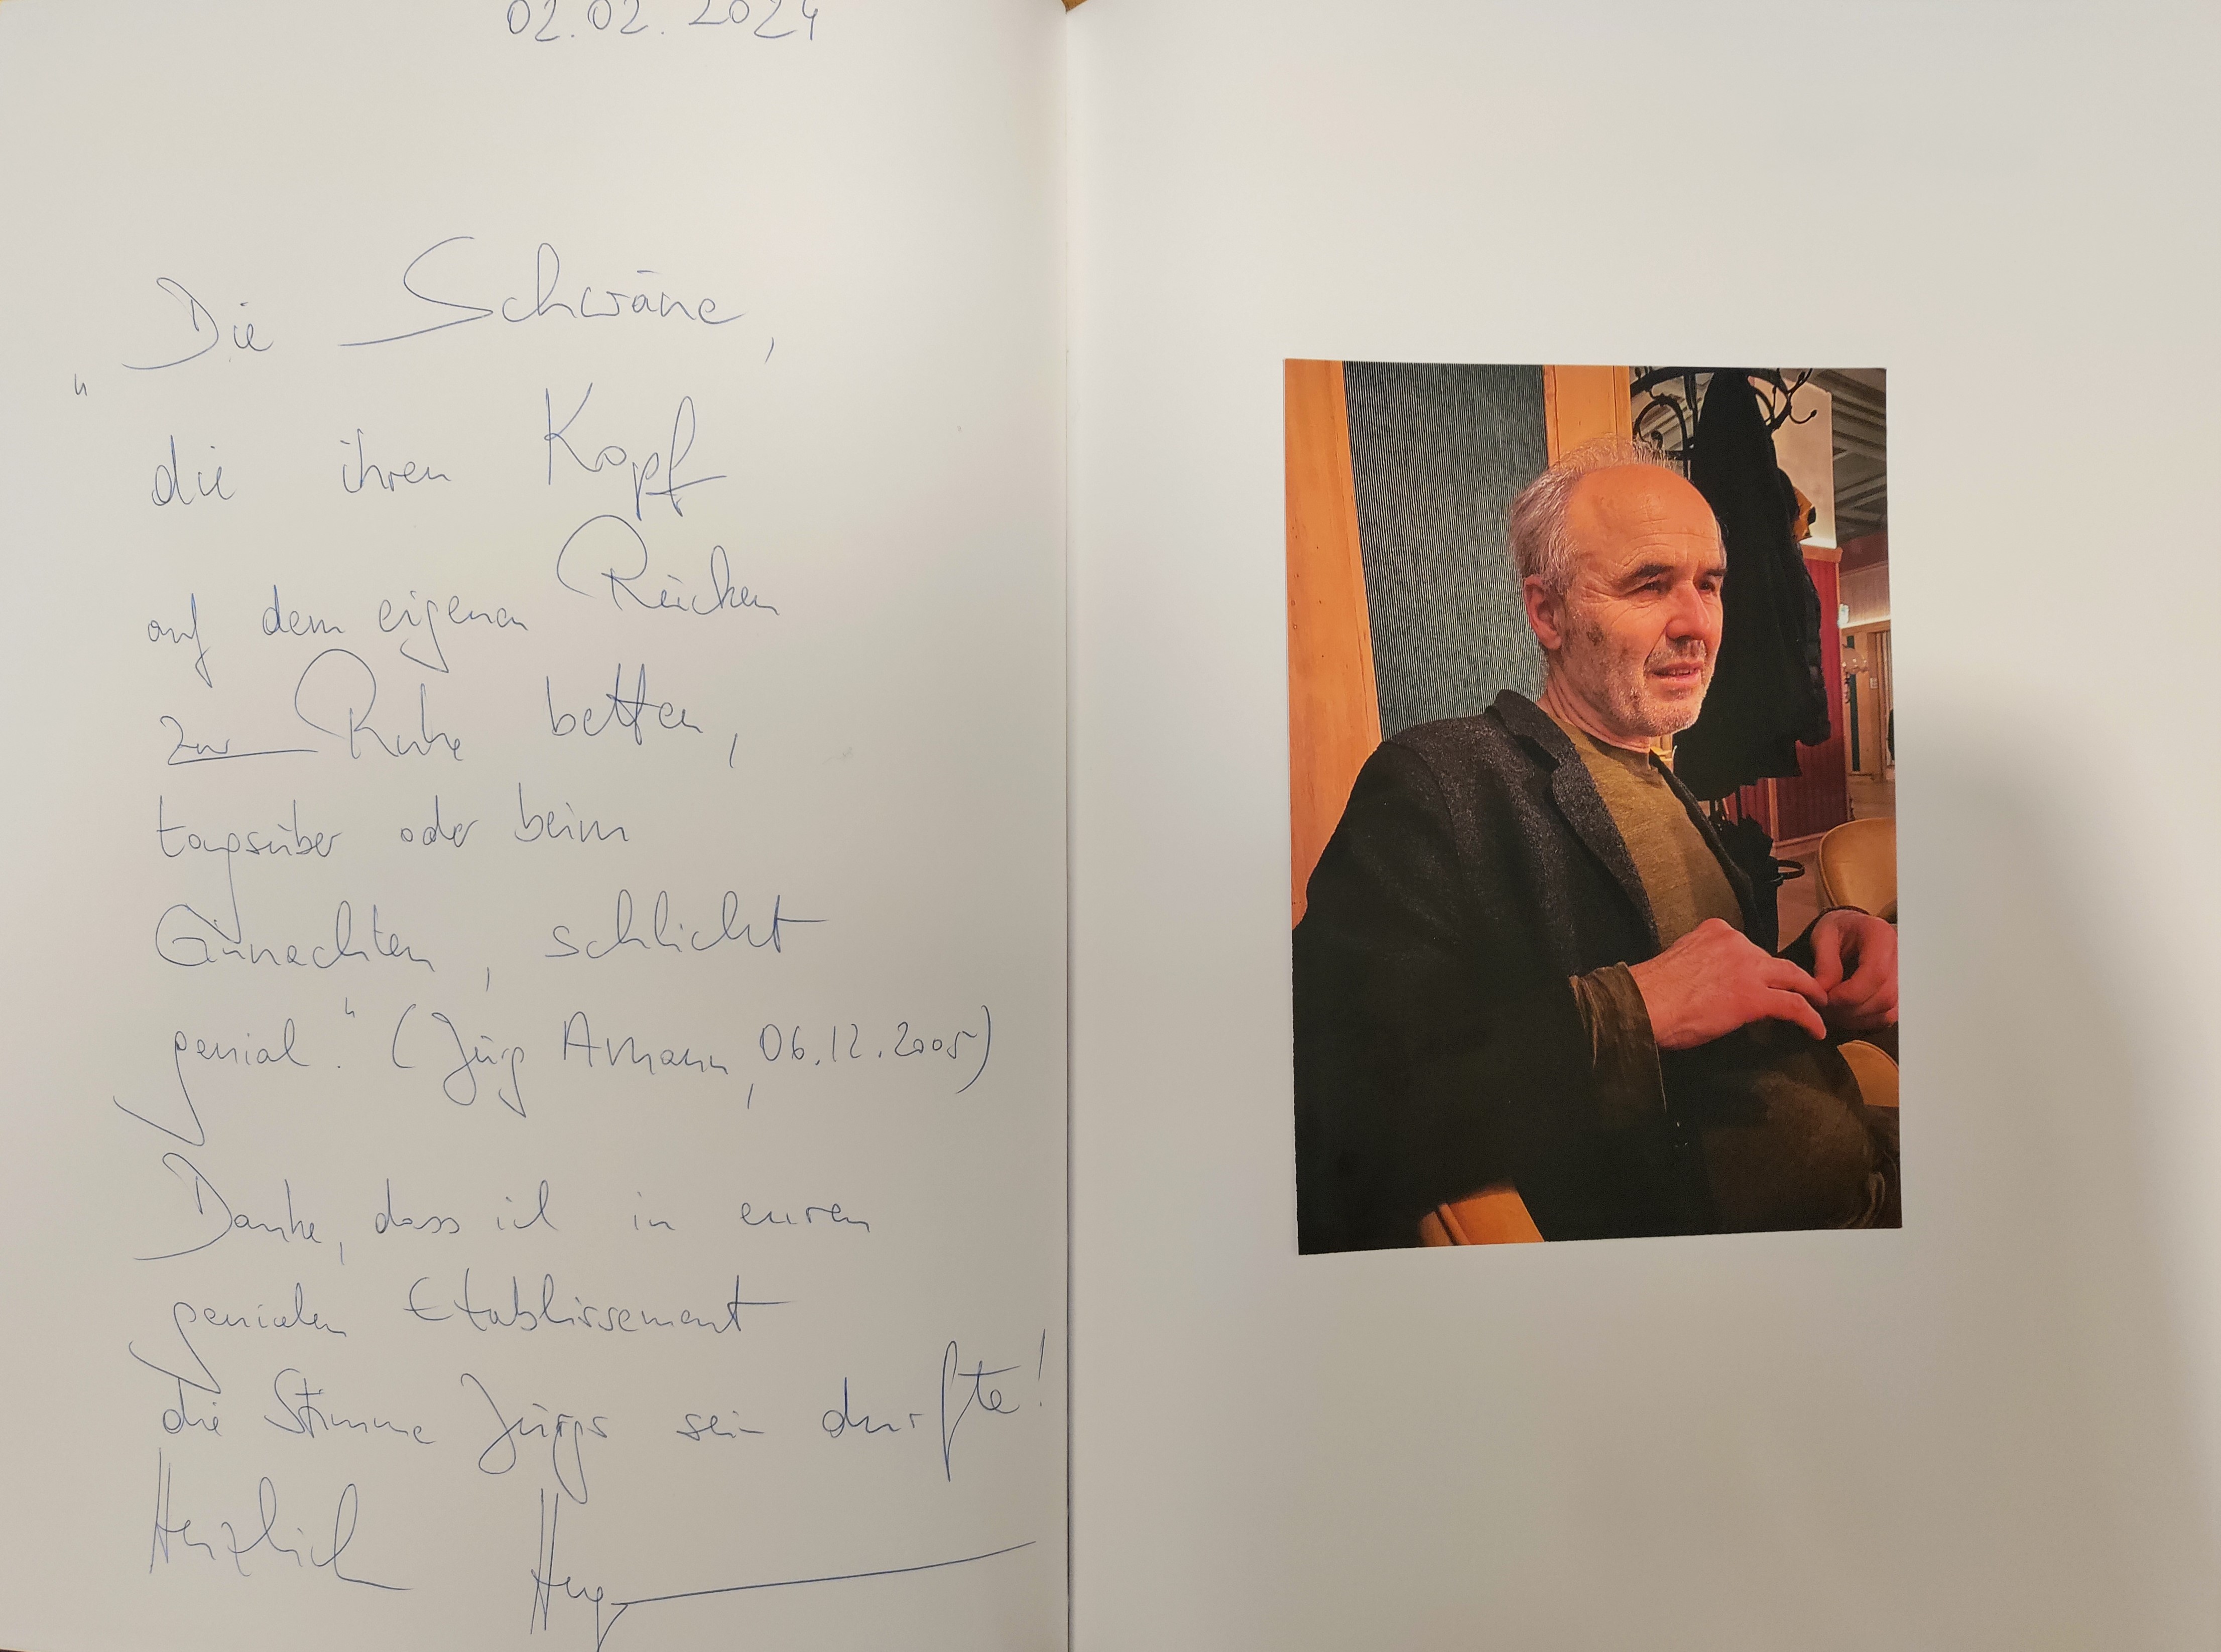 02.02.2024
Die Schwäne,
"
die ihren Kopf
auf dem eigenen Rücken
zur Ruhe betten,
tagsüber oder beim
Einnachten, schlicht
genial." (Jürg Amann, 06.12.2005)
Danke, dass ich in euren
genialen Etablissement
die Stimme Jürgs sein durfte!
Herzlich